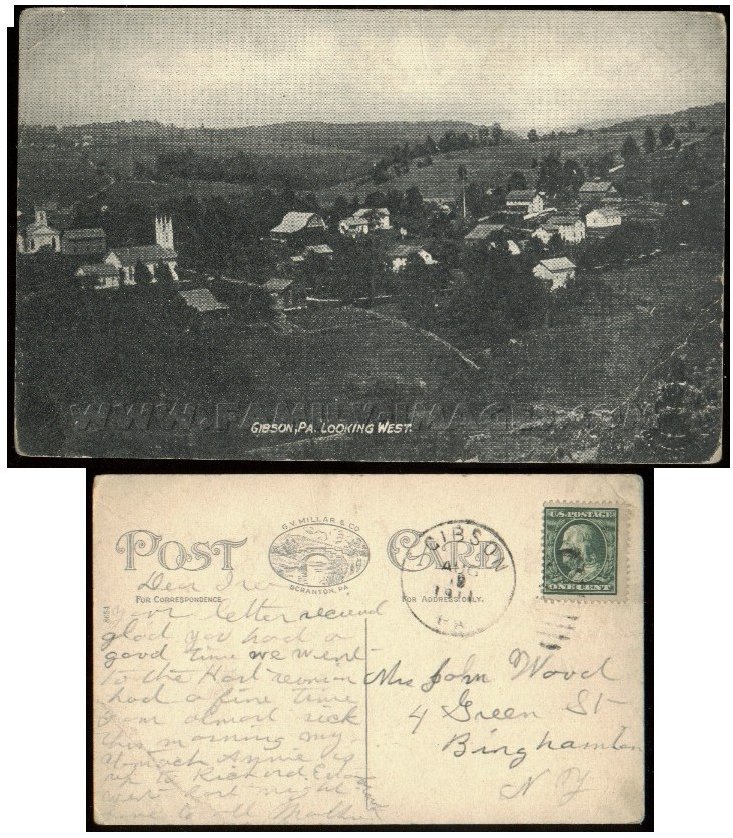 WWW.FAMILY-IMAGES.COM
GIBSON, PA. LOOKING WEST.
POST CARD
G.V. MILLAR & CO.
SCRANTON, PA.
FOR CORRESPONDENCE
FOR ADDRESS ONLY.
GIBSON
AUG
1911
PA
U.S. POSTAGE
ONE CENT
Dear
your letter received
glad you had a
good time we went
to the Hart reunion
had a fine time
almost sick
this morning my
stomach Annie is
up to Richard
last night
to all Mother
Mrs John Wood
4 Green St
Binghamton
N Y